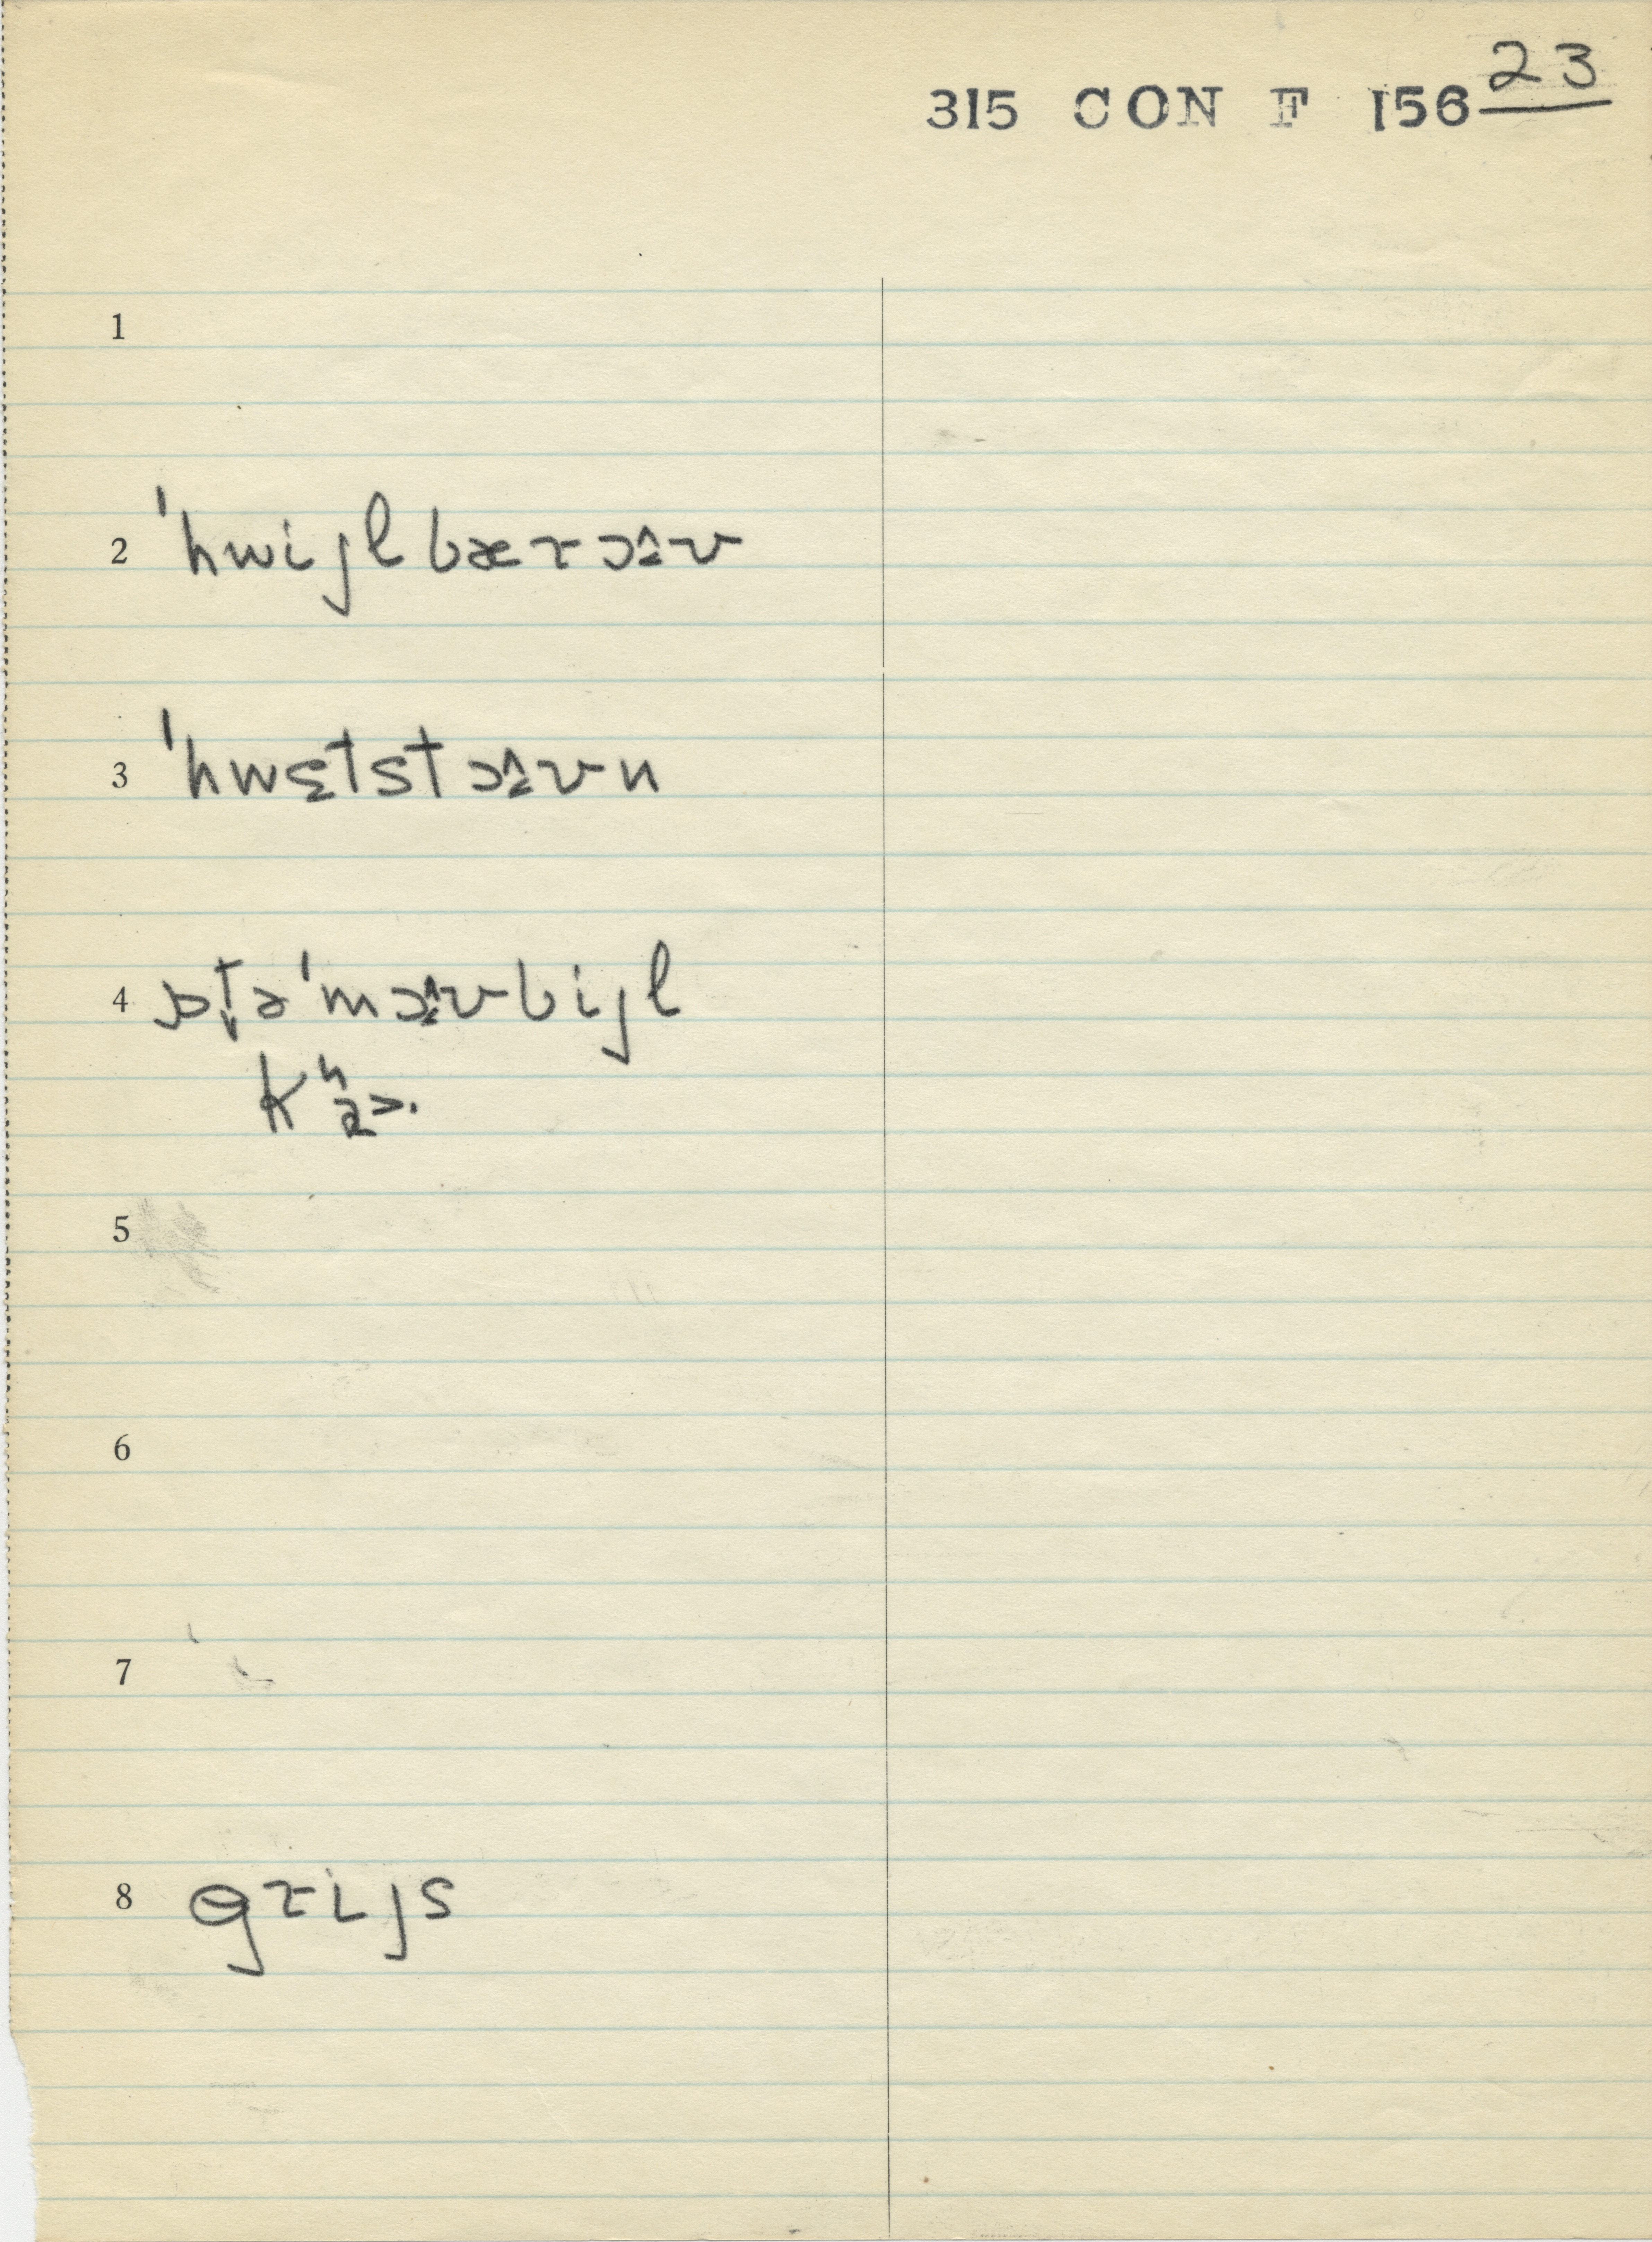 315 CON F 156 23
1
2 ˈhwijlbæɾɔ̭̂ʊ
3 ˈhwɛtstɔ̭̂ʊn
4 ɒt̬əˈmɔ̭̂ʊbijl
kʰɑɚ
5
6
7
8 gɾijs